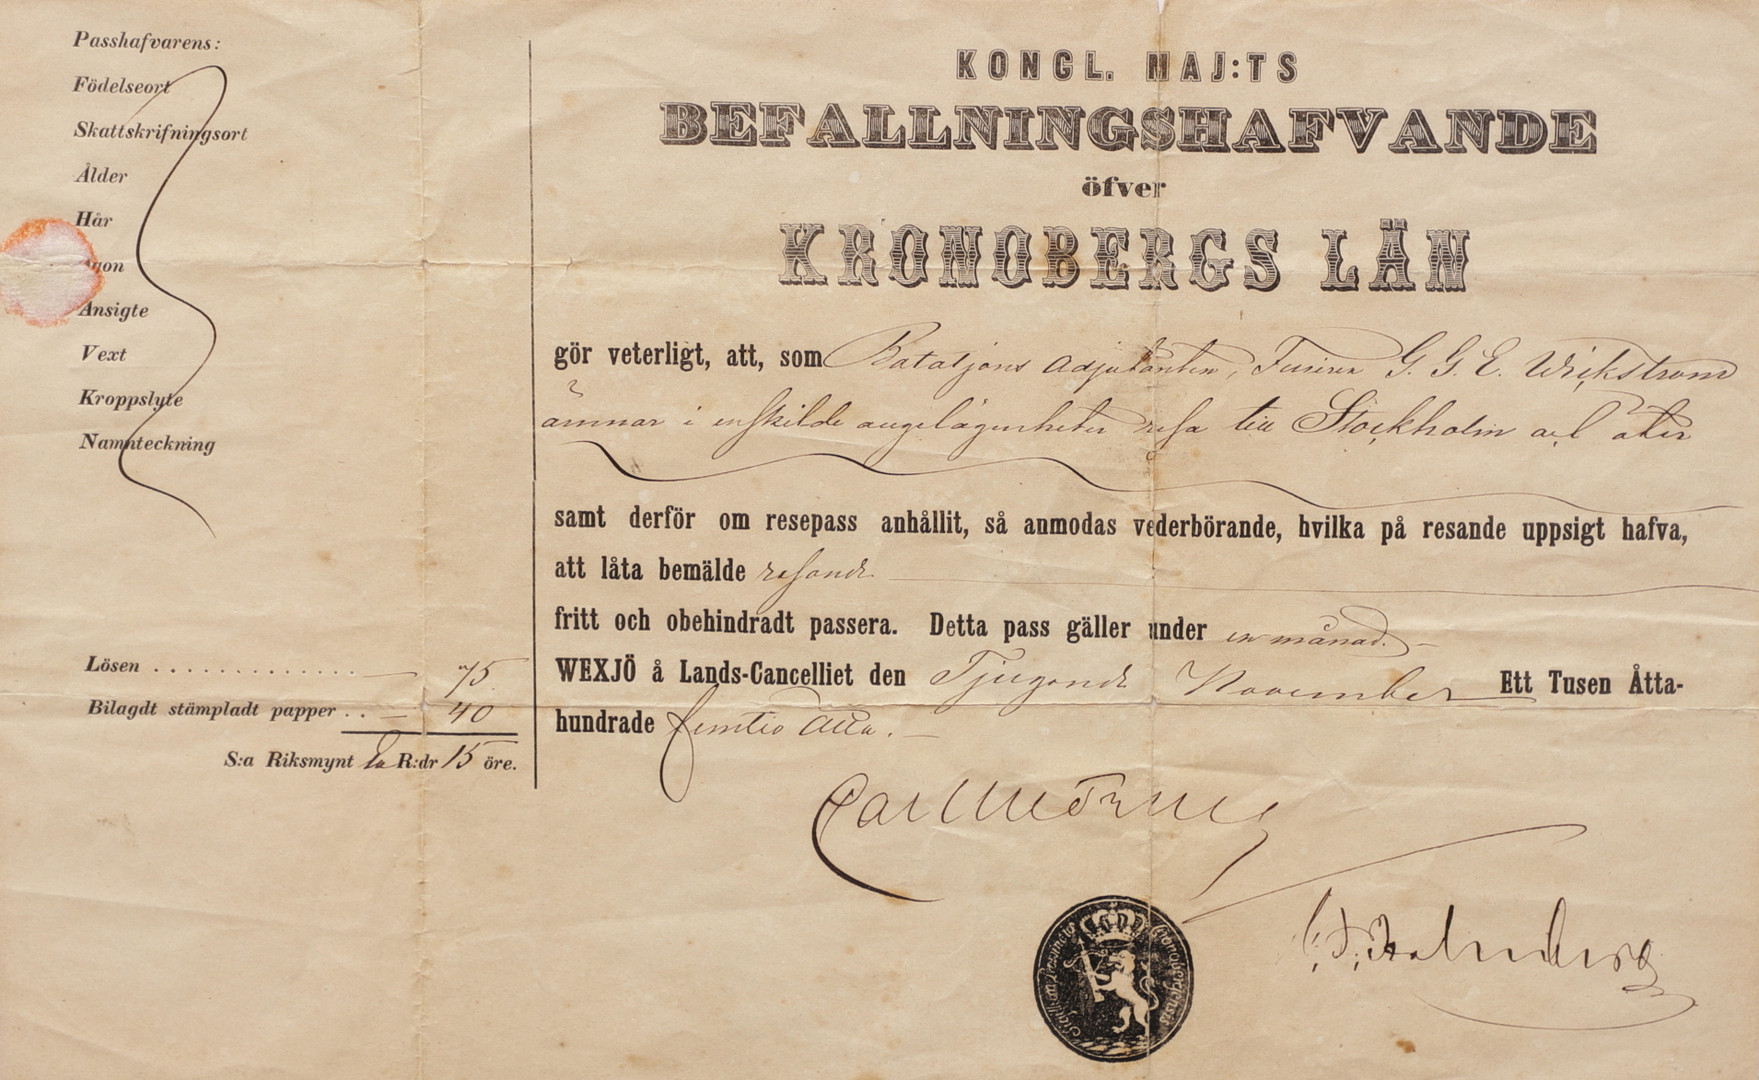 Passhafvarens:
Födelseort
Skattskrifningsort
Ålder
Hår
Ögon
Ansigte
Vext
Kroppslyte
Namnteckning
Lösen . . . . . . . . . . . . . . 75
Bilagdt stämpladt papper . . 40
S:a Riksmynt 1 R:dr 15 öre.
KONGL. MAJ:TS
BEFALLNINGSHAFVANDE
öfver
KRONOBERGS LÄN
gör veterligt, att, som Bataljons Adjutanten, G. G. E. Wickström
ämnar i enskilde angelägenheter resa till Stockholm och åter
samt derför om resepass anhållit, så anmodas vederbörande, hvilka på resande uppsigt hafva,
att låta bemälde resande
fritt och obehindradt passera. Detta pass gäller under en månad.
WEXJÖ å Lands-Cancelliet den Tjugonde November Ett Tusen Åtta-
hundrade femtio Åtta.